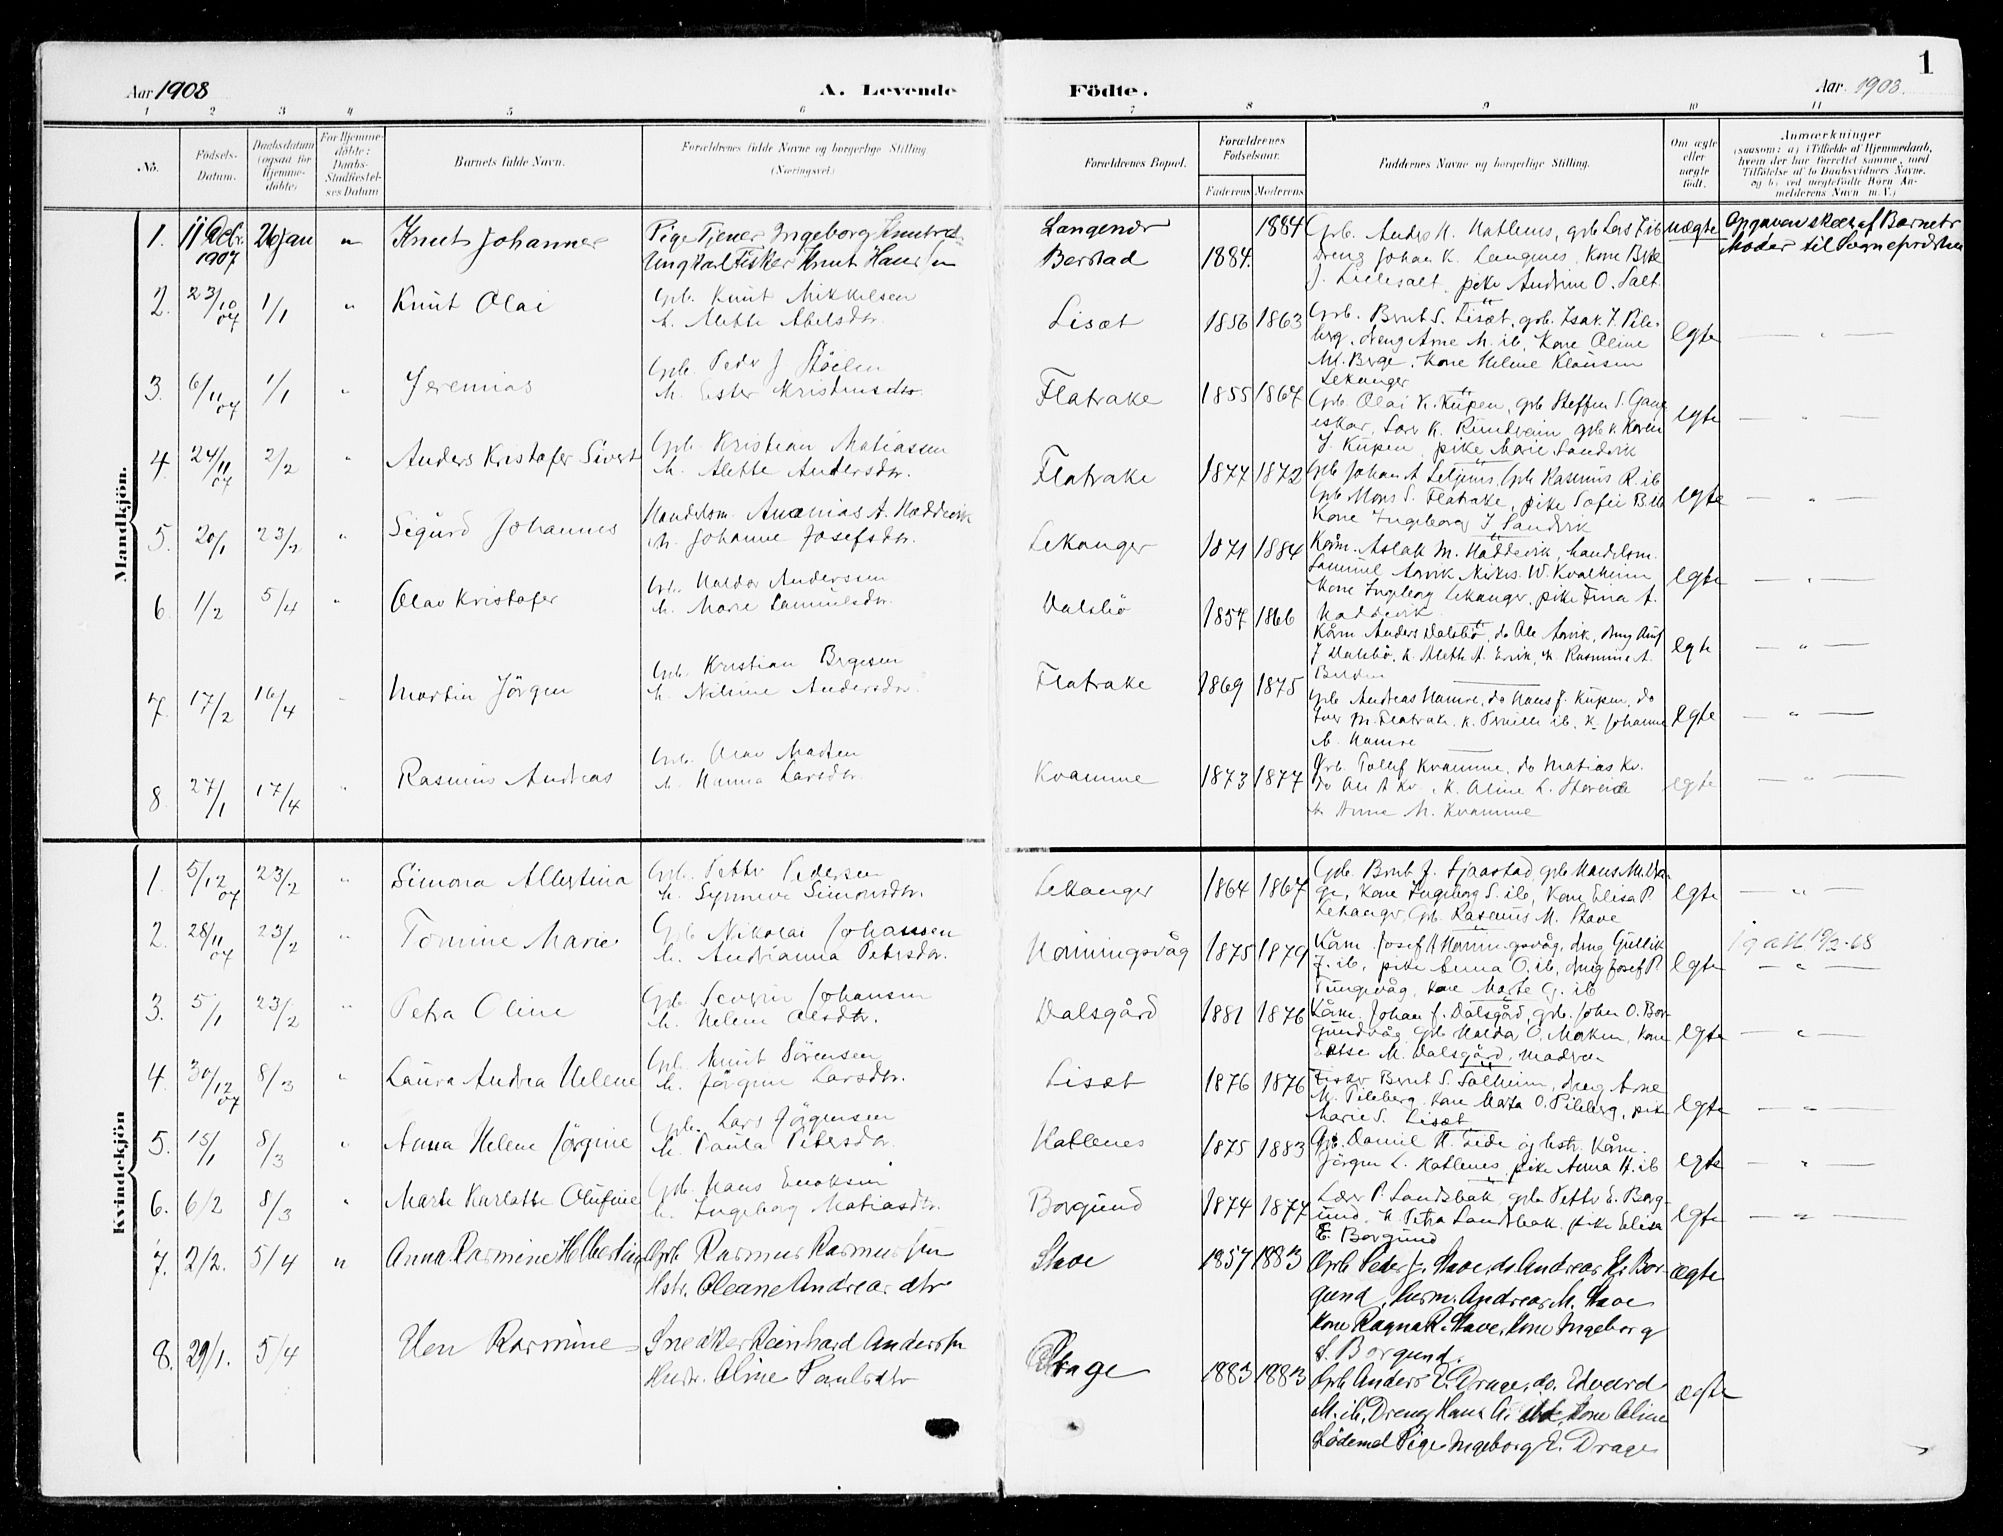 1
Aar 1908
A. Levende
Födte.
Aar 1908.
1 2 3 4 5 6 7 8 9 10 11
No.
Födsels-Datum.
Daabsdatum (ogsaa for Hjemme-döbte)
For Hjemme-döbte: Daabs-Stadfæstel-ses Datum
Barnets fulde Navn.
Forældrenes fulde Navne og borgerlige Stilling. (Næringsvei)
Forældrenes Bopæl.
Forældrenes Födselsaar.
Faderens Moderens
Faddernes Navne og borgerlige Stilling.
Om ægte eller uægte født.
Anmærkninger
(saasom: a) i Tilfælde af Hjemmedaab,
hvem der har forrettet samme, med
Tilföielse af to Daabsvidners Navne.
og b) ved uægtefödte Börn An-
melderens Navn m. V.)
Mandkjön.
1. 11 Decbr. 1907 26 jan " Knut Johannes
Pige Tjener Ingeborg Knutsd.
Ungkarl Fisker Knut Hansen
Langenes
Berstad
1884. 1884
Grb. Anders K. Hatlenes, grb Lars L ib
Dreng Johan K. Langenes, Kone
J. Lillesalt, pike Andrine O. Salt.
uægte
Opgaven skeet af Barnets
Moder til Sognepræsten
2. 23/10 07 1/1 " Knut Olai
Grb. Knut Mikkelsen
h. Alette Abelsdtr.
Lisæt 1856 1863
Grb. Bernt S. Lisæt, grb. Isak J. Pile-
berg, dreng Arne M. ib, Kone Oline
M. Berge, Kone Heline Klausen
Lekanger
egte — " —
3. 6/11 07 1/1 " Jeremias
Grb. Peder J. Støelen
h. Ester Kristensdtr.
Flatrake 1855 1867
Grb Olai K. Kupen, grb Steffen S. Gang
eskar, Lars K. Rundreim, grb k Karen
J. Kupen, pike Marie Sandvik
egte — " —
4. 24/11 07 2/2 " Anders Kristofer Sivert
Grb. Kristian Matiassen
h. Alette Andersdtr.
Flatrake 1877 1872
Grb Johan A Seljenes, Grb Rasmus R. ib
Grb Mons S. Flatrake, pike Sofie B. ib
Kone Ingeborg J Sandvik
egte — " —
5. 20/1 23/2 " Sigurd Johannes
Handelsm. Ananias A. Haddevik
h. Johanne Josefsdtr.
Lekanger 1871 1884
Kårm. Aslak M. Haddevik, handelsm.
Samuel Arvik W. Kvalheim
Kone Ingeborg Lekanger, pike Fina A.
Haddevik
egte — " —
6 1/2 5/4 " Olav Kristofer
Grb. Haldor Anderssen
h. Marie Samuelsdtr.
Dalsbö 1857 1866
Kårm Anders Dalsbö, do Ole Arvik, dreng
J Dalsbö, k. Alette A. Ervik, k. Rasmine A.
egte — " —
7. 17/2 16/4 Martin Jörgen
Grb. Kristian Bergesen
h. Nilsine Andersdtr.
Flatrake 1869 1875
Grb Andreas Hamre, do Hans J. Kupen, do
Iver M. Flatrake, k. Pernille ib, k. Johanne
A. Hamre
egte — " —
8. 27/1 17/4 " Rasmus Andreas
Grb. Olav Madsen
h. Hanna Larsdtr.
Kvamme 1873 1877
Grb. Tollef Kvamme, do Matias Kv.
do Ole A Kv, k. Oline L. Hoveide
k Anne M. Kvamme
egte — " —
Kvindekjön
1. 5/12 07 23/2 " Simona Albertina
Grb. Petter Pedersen
h. Synneve Simonsdtr.
Lekanger 1864 1867
Grb. Bernt J. Sjaastad, grb Hans M. Dra-
ge, Kone Ingeborg S. ib, Kone Elisa P.
Lekanger, Grb Rasmus M. Stave
egte — " —
2. 28/11 07 23/2 " Tomine Marie
Grb Nikolai Johansen
h. Andrianna Petersdtr.
Honningsvåg 1875 1879
Kårm Josef H Honningsvåg, dreng Gullik
J. ib, pike Anna O. ib, dreng Josef P.
Tungevåg, Kone Marte G. ib
egte — " —
3. 5/1 23/2 " Petra Oline
Grb Severin Johansen
h. Helene Olsdtr.
Dalsgård 1881 1876
Kårm. Johan J. Dalsgård, grb. Johan O. Bor-
gundvåg, grb Haldor O. Morken, Kone
M. Dalsgård,
egte — " —
4. 30/12 07 8/3 " Laura Andrea Helene
Grb. Knut Sörensen
h. Jörgine Larsdtr.
Lisæt 1876 1876
Fisker Bernt S. Solheim, dreng Arne
M. Pileberg, Kone Marta O. Pileberg, pike
Marie S. Lisæt
egte — " —
5. 15/1 8/3 " Anna Helene Jörgine
Grb. Lars Jörgensen
h. Paula Petersdtr.
Hatlenes 1875 1883
Grb. Daniel H. Lede og hstr. Kårm.
Jörgen L. Hatlenes, pike Anna H. ib
egte — " —
6. 6/2 8/3 " Marte Karlotte Olufine
Grb Hans Enoksen
h. Ingeborg Matiasdtr.
Borgund 1874 1877
Lærer P. Landsbak, grb Petter E. Borg-
und, k Petra Landsbak, pike Elisa
E. Borgund
egte — " —
7. 2/2. 5/4 " Anna Rasmine Helbertine
Grb Rasmus Rasmussen
Hstr. Oleane Andreasdtr
Stave 1857 1883
Grb Peder J. Stave, do Andreas H. Bor-
gund, Andreas M. Stave
Kone Ragna R. Stave, Kone Ingeborg
S. Borgund.
ægte
8. 29/1. 5/4 Rasmine
Snedker Reinhard Anderssen
Hustr. Oline Paulsdtr
Drage 1883 1883
Grb Anders E. Drage, do. Edvard
M. ib, Dreng Hans A. ib, Kone Oline
Lødemel Pige Ingeborg E. Drage
ægte